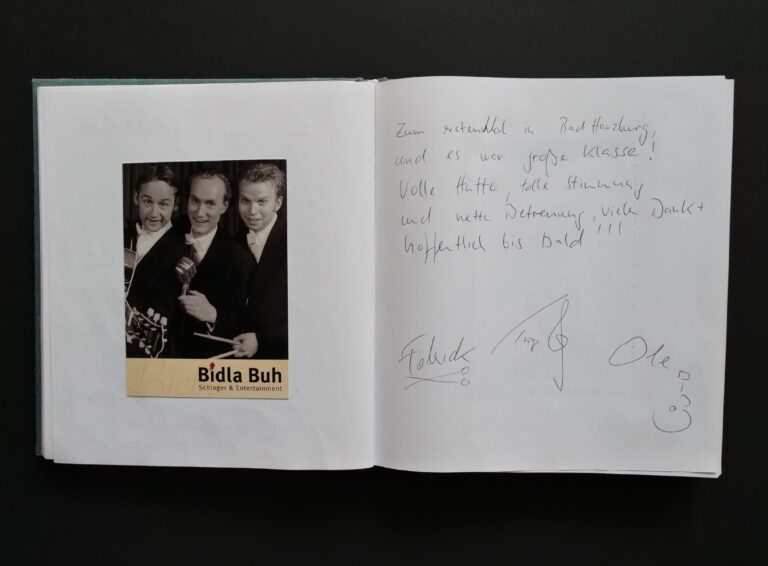 Bidla Buh
Schlager & Entertainment
Zum ersten Mal in Bad Harzburg,
und es war große Klasse!
Volle Hütte, tolle Stimmung
und nette Betreuung, vielen Dank +
hoffentlich bis Bald!!!
Ole